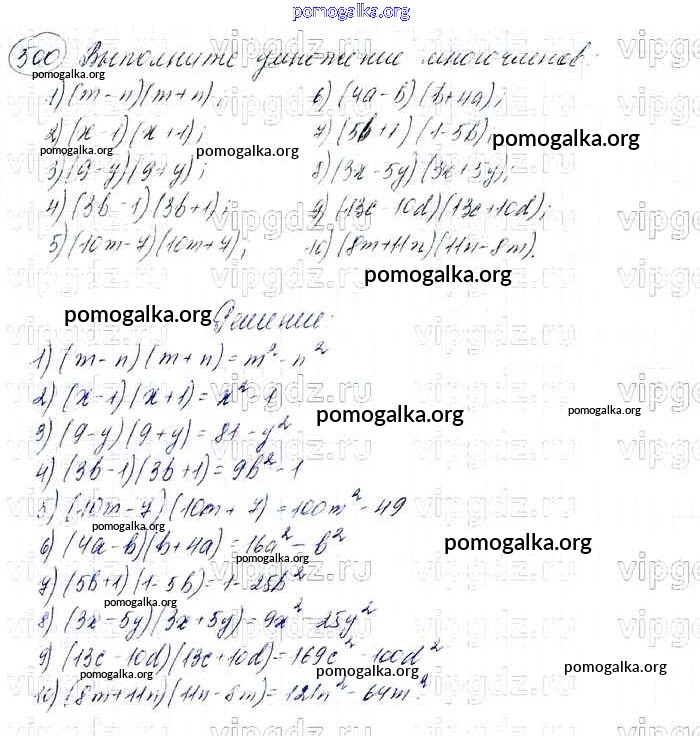 pomogalka.org
500 Выполните умножение многочленов:
pomogalka.org
1) (m - n)(m + n); 6) (4a - b)(b + 4a);
2) (x - 1)(x + 1); 7) (5b + 1)(1 - 5b);
pomogalka.org pomogalka.org pomogalka.org
3) (9 - y)(9 + y); 8) (3x - 5y)(3x + 5y);
4) (3b - 1)(3b + 1); 9) (13c - 10d)(13c + 10d);
5) (10m - 7)(10m + 7); 10) (8m + 11n)(11n - 8m).
pomogalka.org
pomogalka.org Решение:
1) (m - n)(m + n) = m² - n²
2) (x - 1)(x + 1) = x² - 1
pomogalka.org pomogalka.org
3) (9 - y)(9 + y) = 81 - y²
4) (3b - 1)(3b + 1) = 9b² - 1
5) (10m - 7)(10m + 7) = 100m² - 49
pomogalka.org
6) (4a - b)(b + 4a) = 16a² - b²
pomogalka.org
pomogalka.org
7) (5b + 1)(1 - 5b) = 1 - 25b²
pomogalka.org
8) (3x - 5y)(3x + 5y) = 9x² - 25y²
9) (13c - 10d)(13c + 10d) = 169c² - 100d²
pomogalka.org pomogalka.org pomogalka.org
10) (8m + 11n)(11n - 8m) = 121n² - 64m²
vipgdz.ru